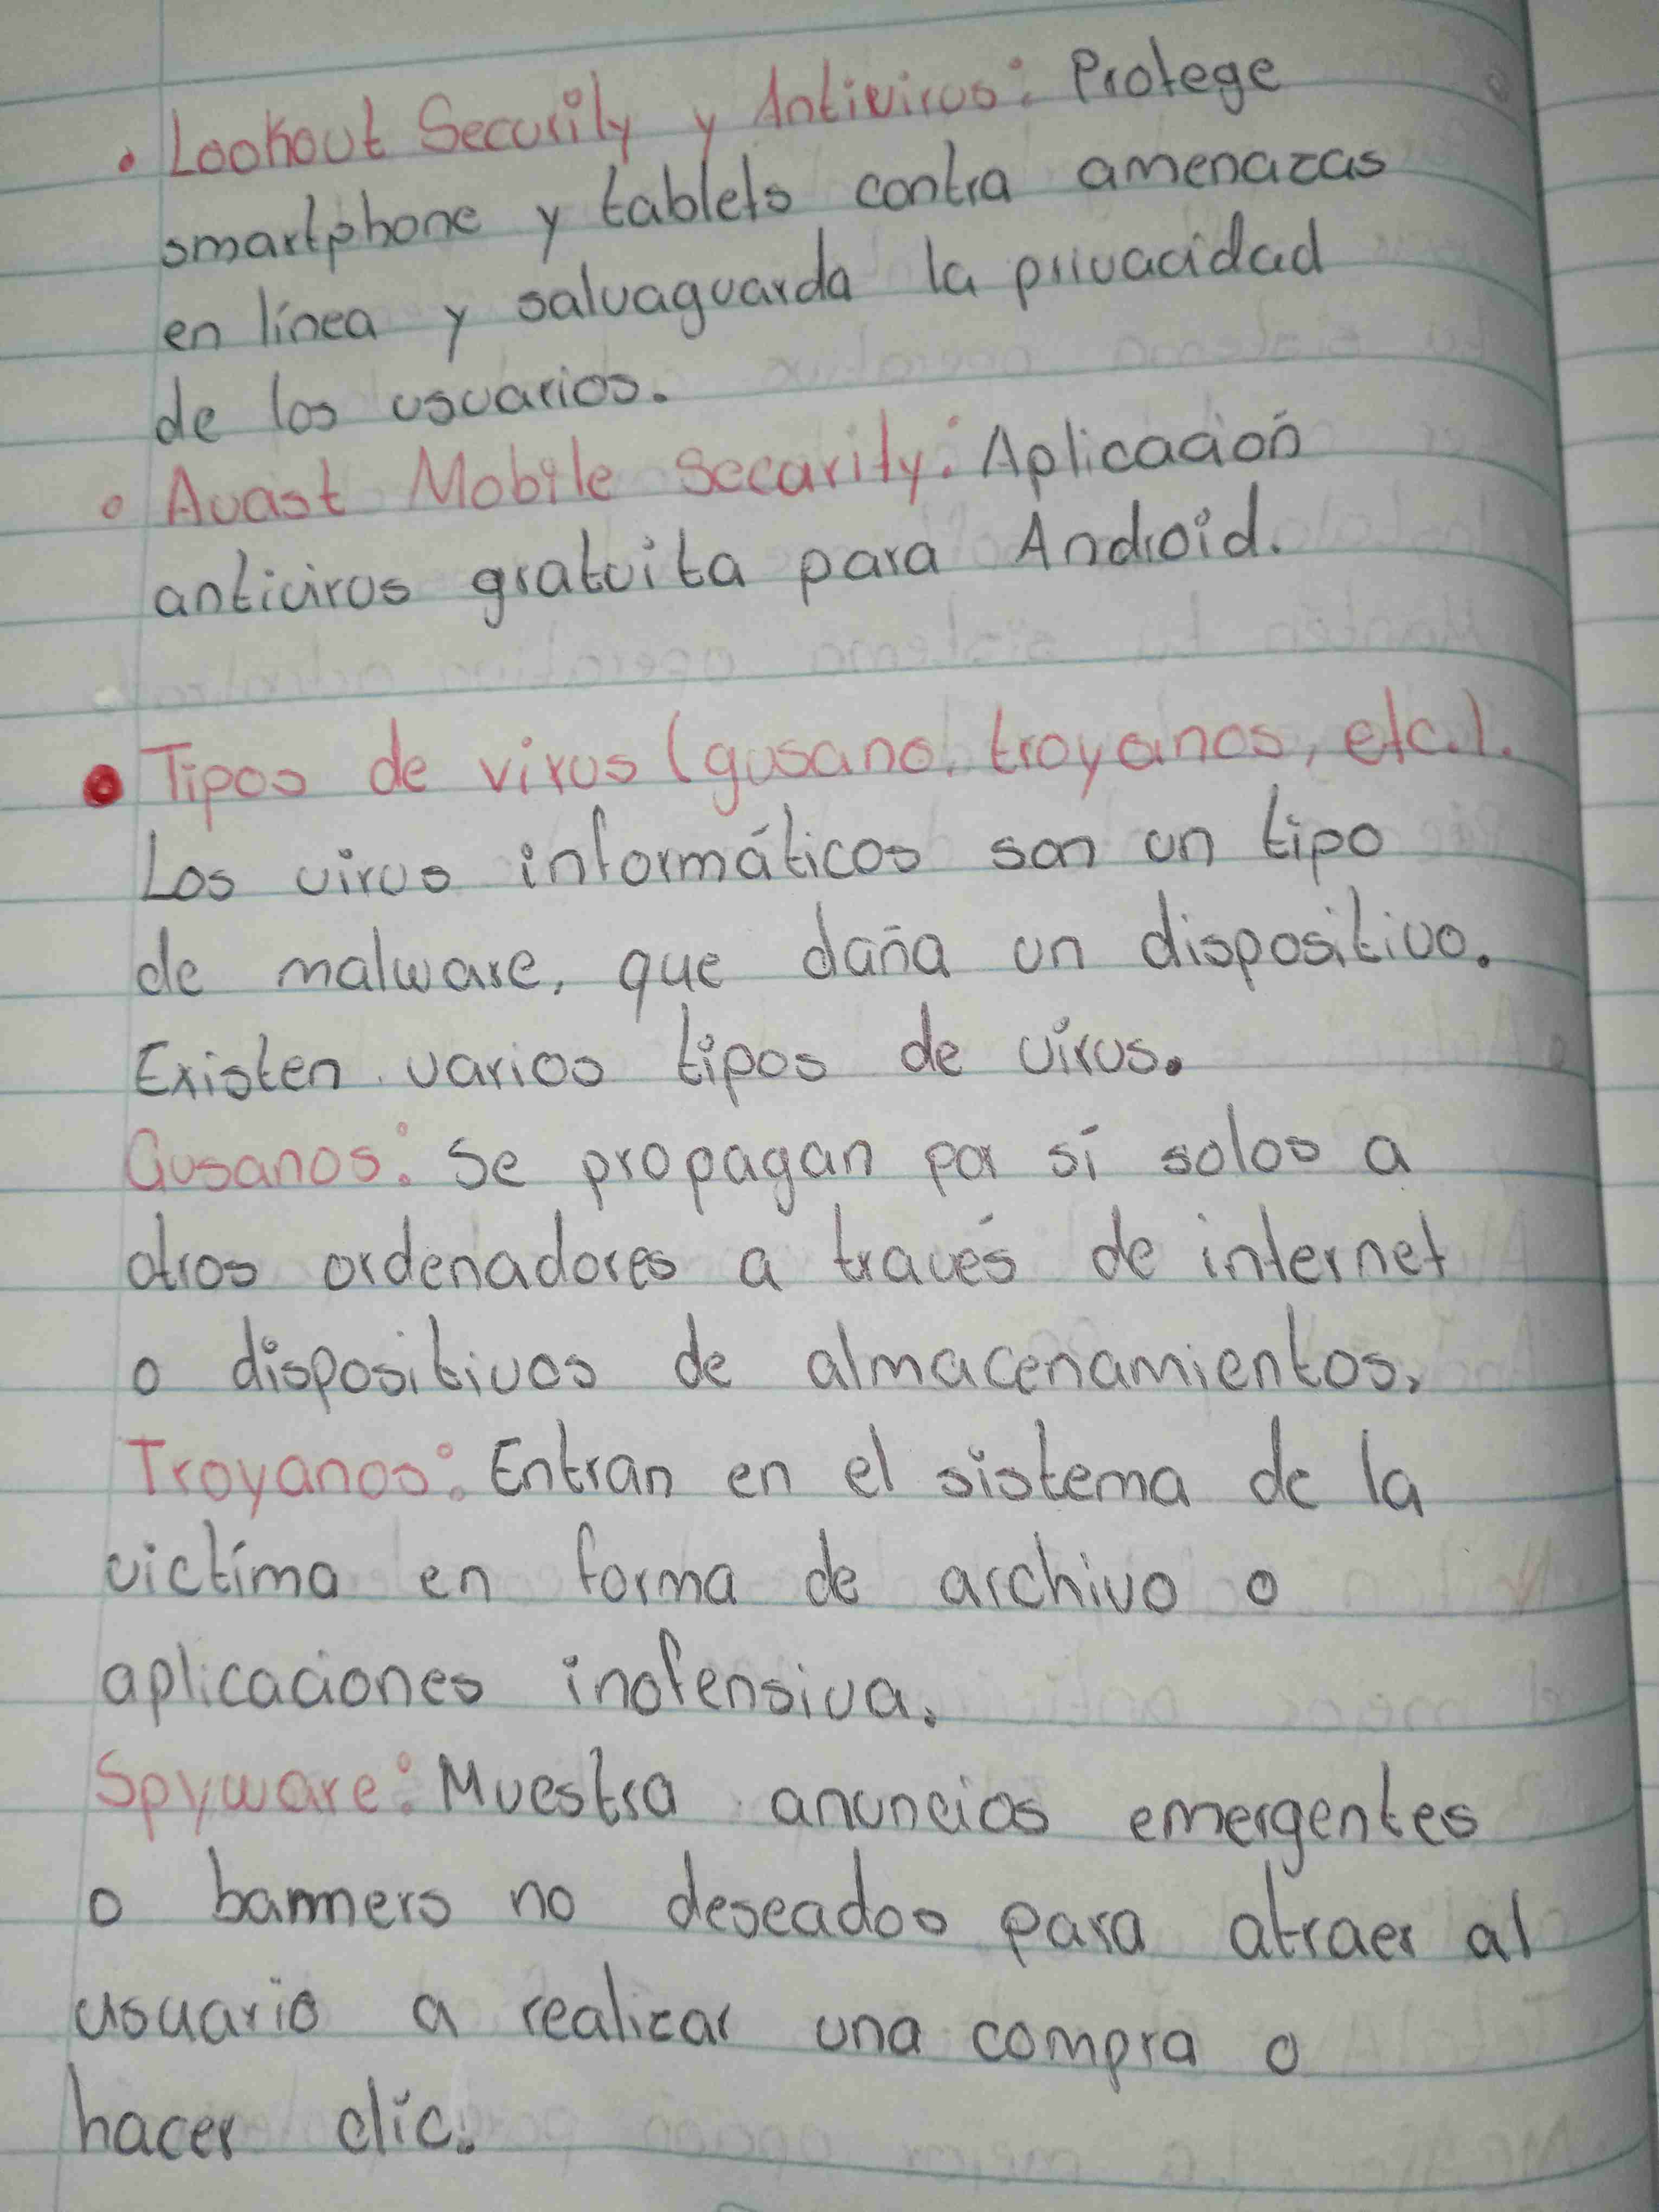 • Lookout Security y Antivirus: Protege
smartphone y tablets contra amenazas
en línea y salvaguarda la privacidad
de los usuarios.
• Avast Mobile Secarity: Aplicación
antivirus gratuita para Android.
• Tipos de virus (gusano, troyanos, etc.).
Los virus informáticos son un tipo
de malware, que daña un dispositivo.
Existen varios tipos de virus.
Gusanos: Se propagan por sí solos a
otros ordenadores a través de internet
o dispositivos de almacenamientos,
Troyanos: Entran en el sistema de la
victíma en forma de archivo o
aplicaciones inofensiva.
Spyware: Muestra anuncios emergentes
o banners no deseados para atraer al
usuario a realizar una compra o
hacer clic.